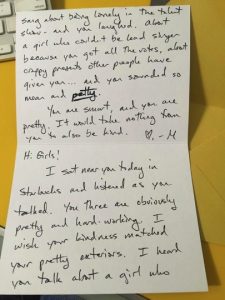 sang about being lonely in the talent
show - and you laughed. About
a girl who couldn't be lead singer
because you got all the votes, about
crappy presents other people have
given you... and you sounded so
mean and petty.
You are smart, and you are
pretty. It would take nothing from
you to also be kind. ♡, -M
Hi Girls!
I sat near you today in
Starbucks and listened as you
talked. You three are obviously
pretty and hard-working. I
wish your kindness matched
your pretty exteriors. I heard
you talk about a girl who